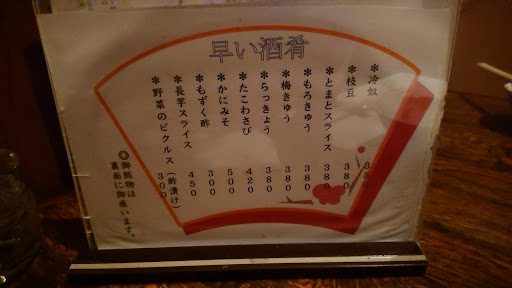 早い酒肴
＊冷奴 350
＊枝豆 380
＊とまとスライス 380
＊もろきゅう 380
＊梅きゅう 380
＊らっきょう 380
＊たこわさび 420
＊かにみそ 500
＊もずく酢 300
＊長芋スライス 450
＊野菜のピクルス（酢漬け） 300
◎御飯物は
裏面に御座います。